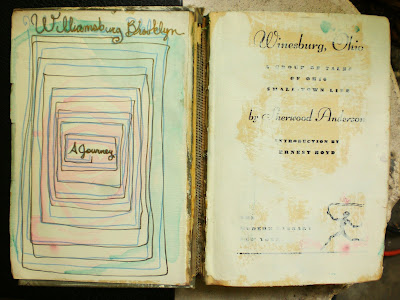 Williamsburg Brooklyn
A Journey
Winesburg, Ohio
A GROUP OF TALES
OF OHIO
SMALL-TOWN LIFE
by Sherwood Anderson
INTRODUCTION BY
ERNEST BOYD
THE
MODERN LIBRARY
NEW YORK